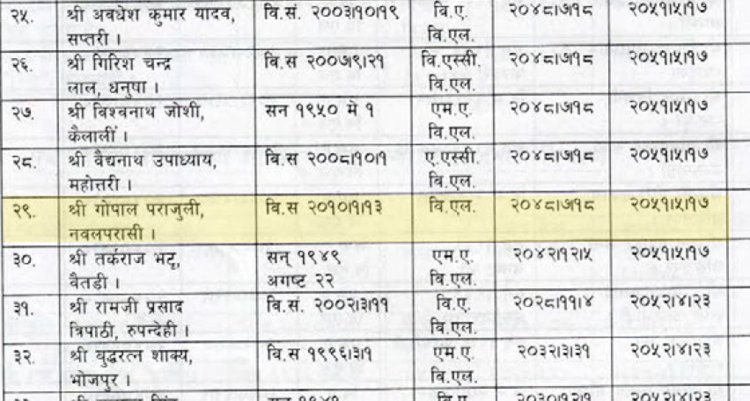 २५. श्री अवधेश कुमार यादव, वि.सं. २००३।१०।१९ वि.ए. २०४८।७।१८ २०५१।५।१७
सप्तरी । वि.एल.
२६. श्री गिरिश चन्द्र वि.स २००७।९।२१ वि.एस्सी. २०४८।७।१८ २०५१।५।१७
लाल, धनुषा । वि.एल.
२७. श्री विश्वनाथ जोशी, सन १९५० मे १ एम.ए. २०४८।७।१८ २०५१।५।१७
कैलालीं । वि.एल.
२८. श्री वैद्यनाथ उपाध्याय, वि.स २००८।१०।१ ए.एस्सी. २०४८।७।१८ २०५१।५।१७
महोत्तरी । वि.एल.
२९. श्री गोपाल पराजुली, वि.स २०१०।१।१३ वि.एल. २०४८।७।१८ २०५१।५।१७
नवलपरासी ।
३०. श्री तर्कराज भट्ट, सन् १९४९ एम.ए. २०४२।१२।५ २०५१।५।१७
वैतडी । अगष्ट २२ वि.एल.
३१. श्री रामजी प्रसाद वि.सं. २००२।३।११ वि.ए. २०२८।११।४ २०५२।४।२३
त्रिपाठी, रुपन्देही । वि.एल.
३२. श्री बुद्धरत्न शाक्य, वि.स १९९६।३।१ एम.ए. २०३२।३।३१ २०५२।४।२३
भोजपुर । वि.एल.